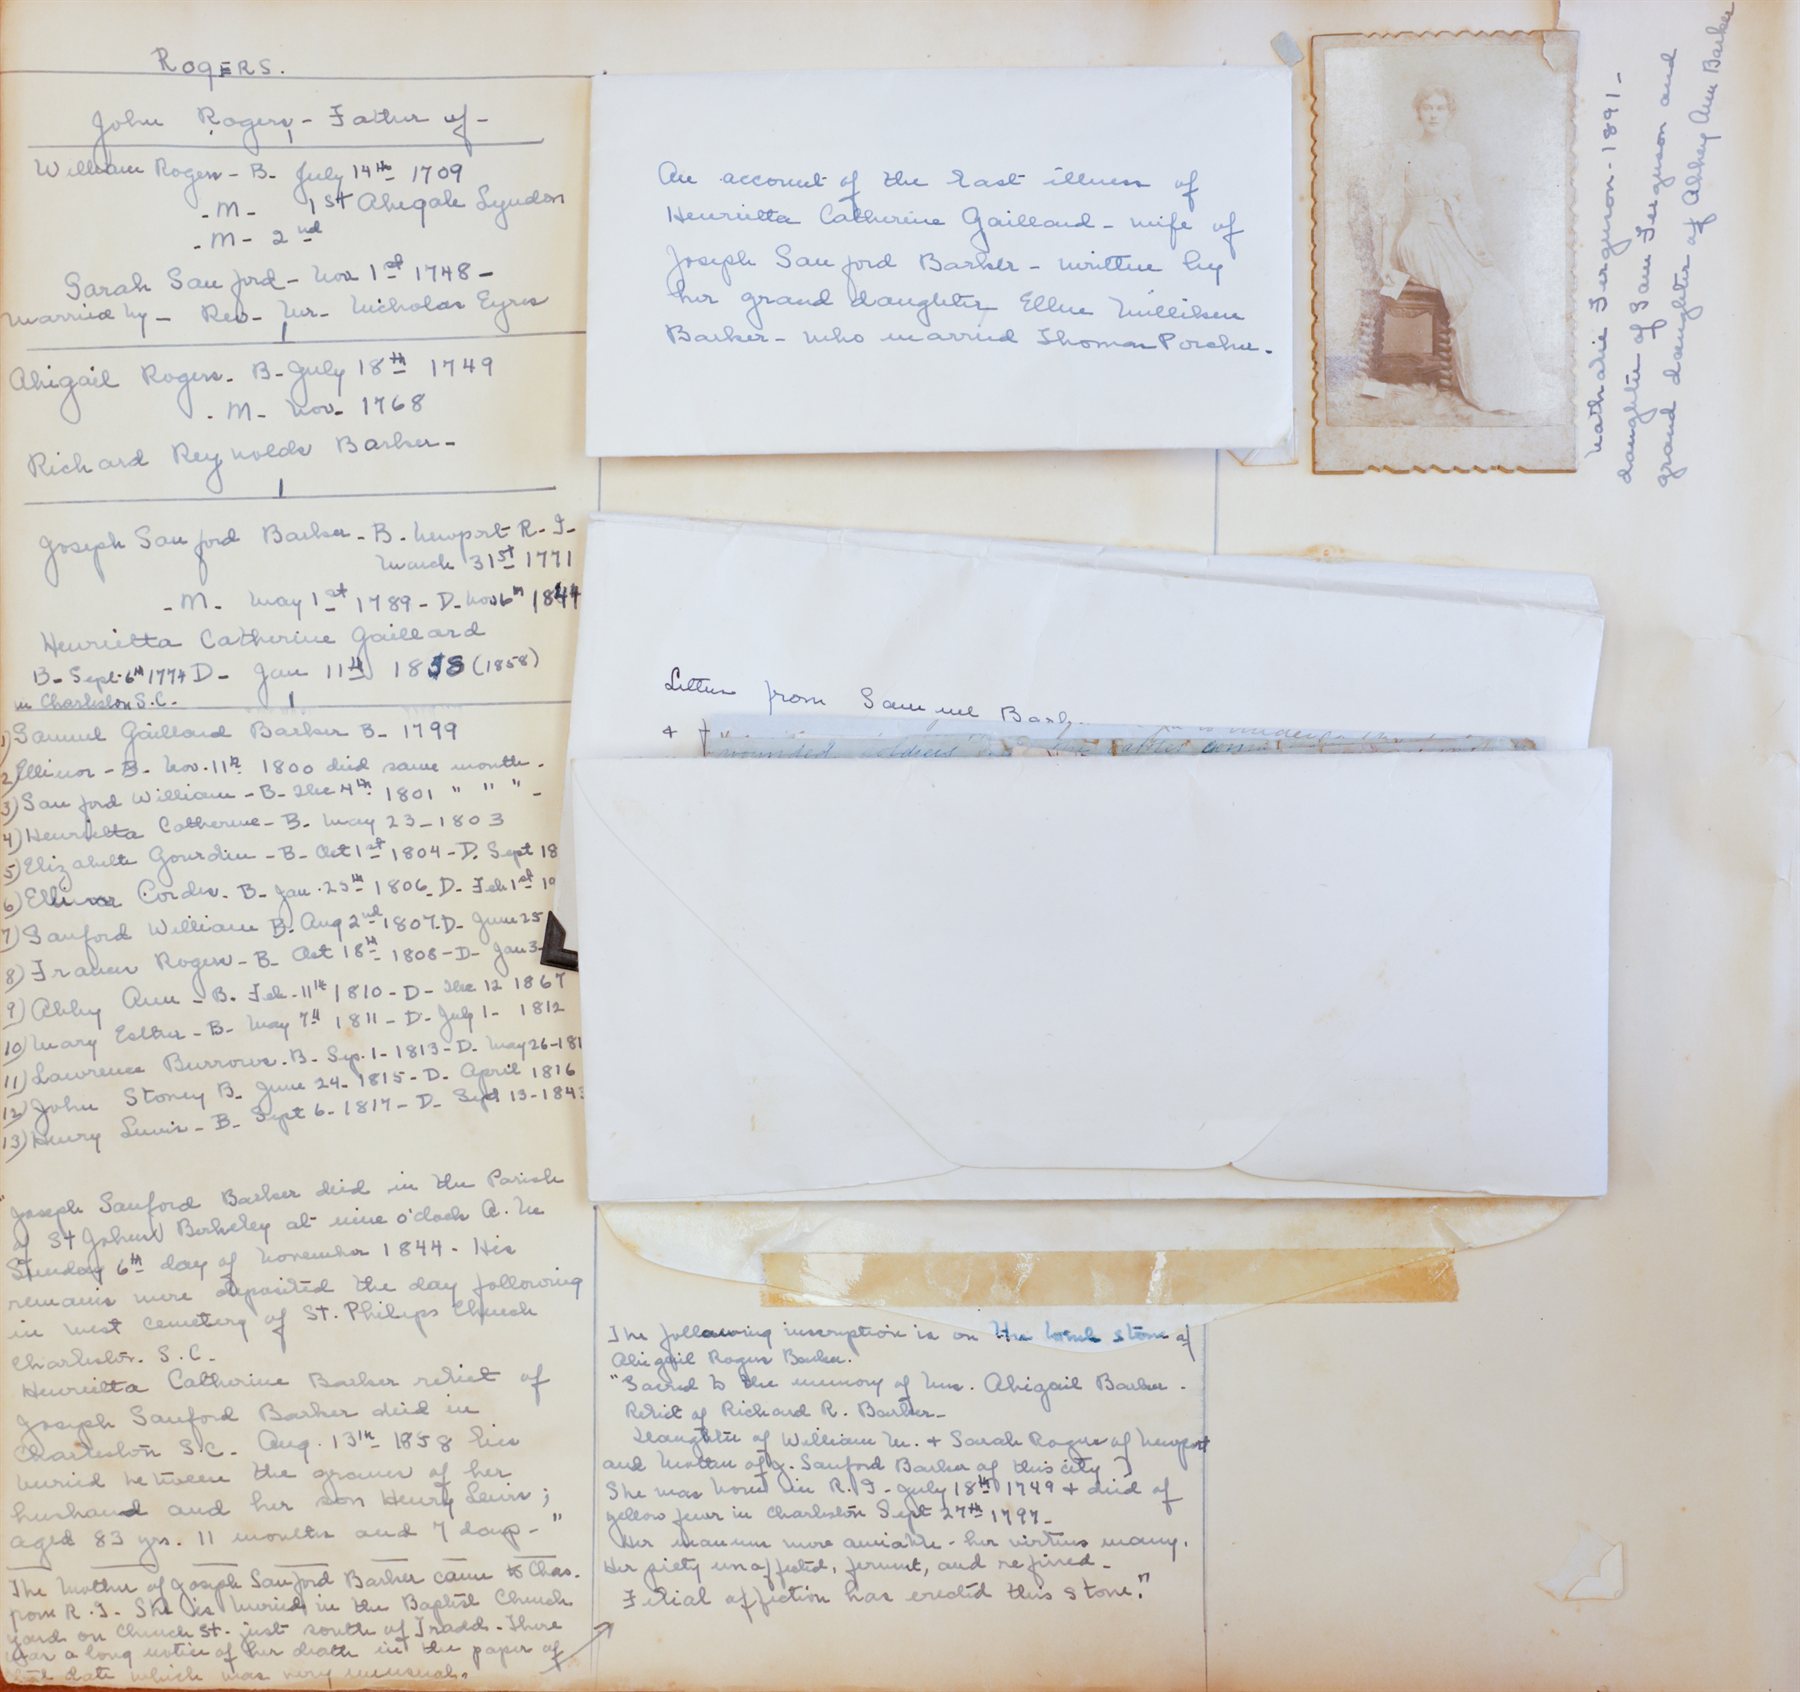 ROGERS.
John Rogers - Father of -
William Rogers - B- July 14th 1709
- M - 1st Abegale Lyndon
- M - 2nd
Sarah Sanford - Nov 1st 1748 -
Married by - Rev - Mr - Nicholas Eyres
Abigail Rogers - B - July 18th 1749
- M - Nov - 1768
Richard Reynolds Barker -
Joseph Sanford Barker - B. Newport R-I-
March 31st 1771
- M - May 1st 1789 - D. Nov 6th 1844
Henrietta Catherine Gaillard
B- Sept. 6th 1774 D - Jan 11th 1858 (1858)
in Charleston S.C.
1) Samuel Gaillard Barker B- 1799
2) Ellinor - B - Nov. 11th 1800 died same month -
3) Sanford William - B - Dec 4th 1801 " " " -
4) Henrietta Catherine - B. May 23 - 1803
5) Elizabeth Gourdin - B - Oct 1st 1804 - D. Sept 18
6) Ellinor Cordes - B - Jan. 25th 1806 - D - Feb 1st
7) Sanford William B. Aug 2nd 1807. D - June 25
8) Francis Rogers - B - Oct 18th 1808 - D - Jan 3
9) Abby Ann - B. Feb. 11th 1810 - D - Dec 12 1867
10) Mary Esther - B - May 7th 1811 - D - July 1 - 1812
11) Lawrence Burrows. B - Sep. 1 - 1813 - D. May 26 - 181
12) John Stoney B. June 24 - 1815 - D - April 1816
13) Henry Lewis - B - Sept 6 - 1817 - D - Sept 13 - 1843
"Joseph Sanford Barker died in the Parish
of St Johns Berkeley at nine o'clock A. M
Sunday 6th day of November 1844 - His
remains were deposited the day following
in West cemetery of St. Philips Church
Charleston. S.C.
Henrietta Catherine Barker relict of
Joseph Sanford Barker died in
Charleston S.C. Aug. 13th 1858 lies
buried between the graves of her
husband and her son Henry Lewis;
aged 83 yrs. 11 months and 7 days - "
The Mother of Joseph Sanford Barker came to Chas.
from R.I. She is buried in the Baptist Church
yard on Church St. just south of Tradd - There
was a long notice of her death in the paper of
that date which was very unusual.
An account of the last illness of
Henrietta Catherine Gaillard - wife of
Joseph Sanford Barker - written by
her grand daughter Ellen Milliken
Barker - who married Thomas Porcher.
Nathalie Ferguson - 1891 -
daughter of Sam Ferguson and
grand daughter of Abbey Ann Barker
Letter from Samuel Bark
+
wounded soldiers
The following inscription is on the tomb stone of
Abigail Rogers Barker.
"Sacred to the memory of Mrs. Abigail Barker.
Relict of Richard R. Barker -
Daughter of William M. + Sarah Rogers of Newport
and Mother of J. Sanford Barker of this city
She was born in R.I - July 18th 1749 + died of
yellow fever in Charleston Sept 27th 1797 -
Her manners were amiable - her virtues many.
Her piety unaffected, fervent, and refined -
Filial affection has erected this stone."